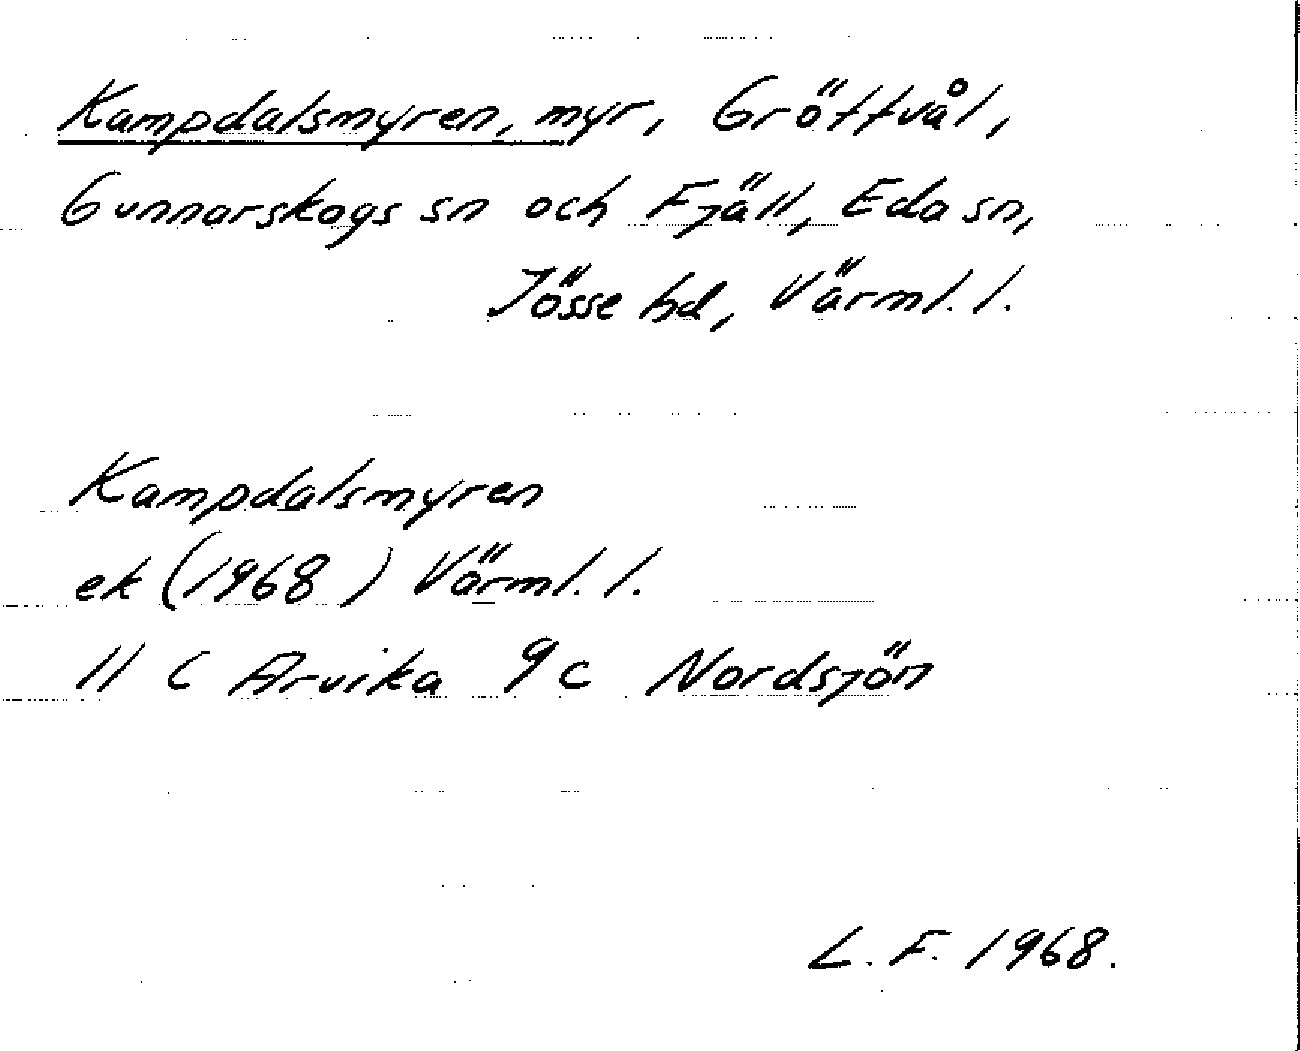 Kampdalsmyren, myr, Gröttvål,
Gunnarskogs sn och Fjäll, Eda sn,
Jösse hd, Värml. l.
Kampdalsmyren
ek (1968) Värml. l.
11 C Arvika 9 c Nordsjön
L. F. 1968.